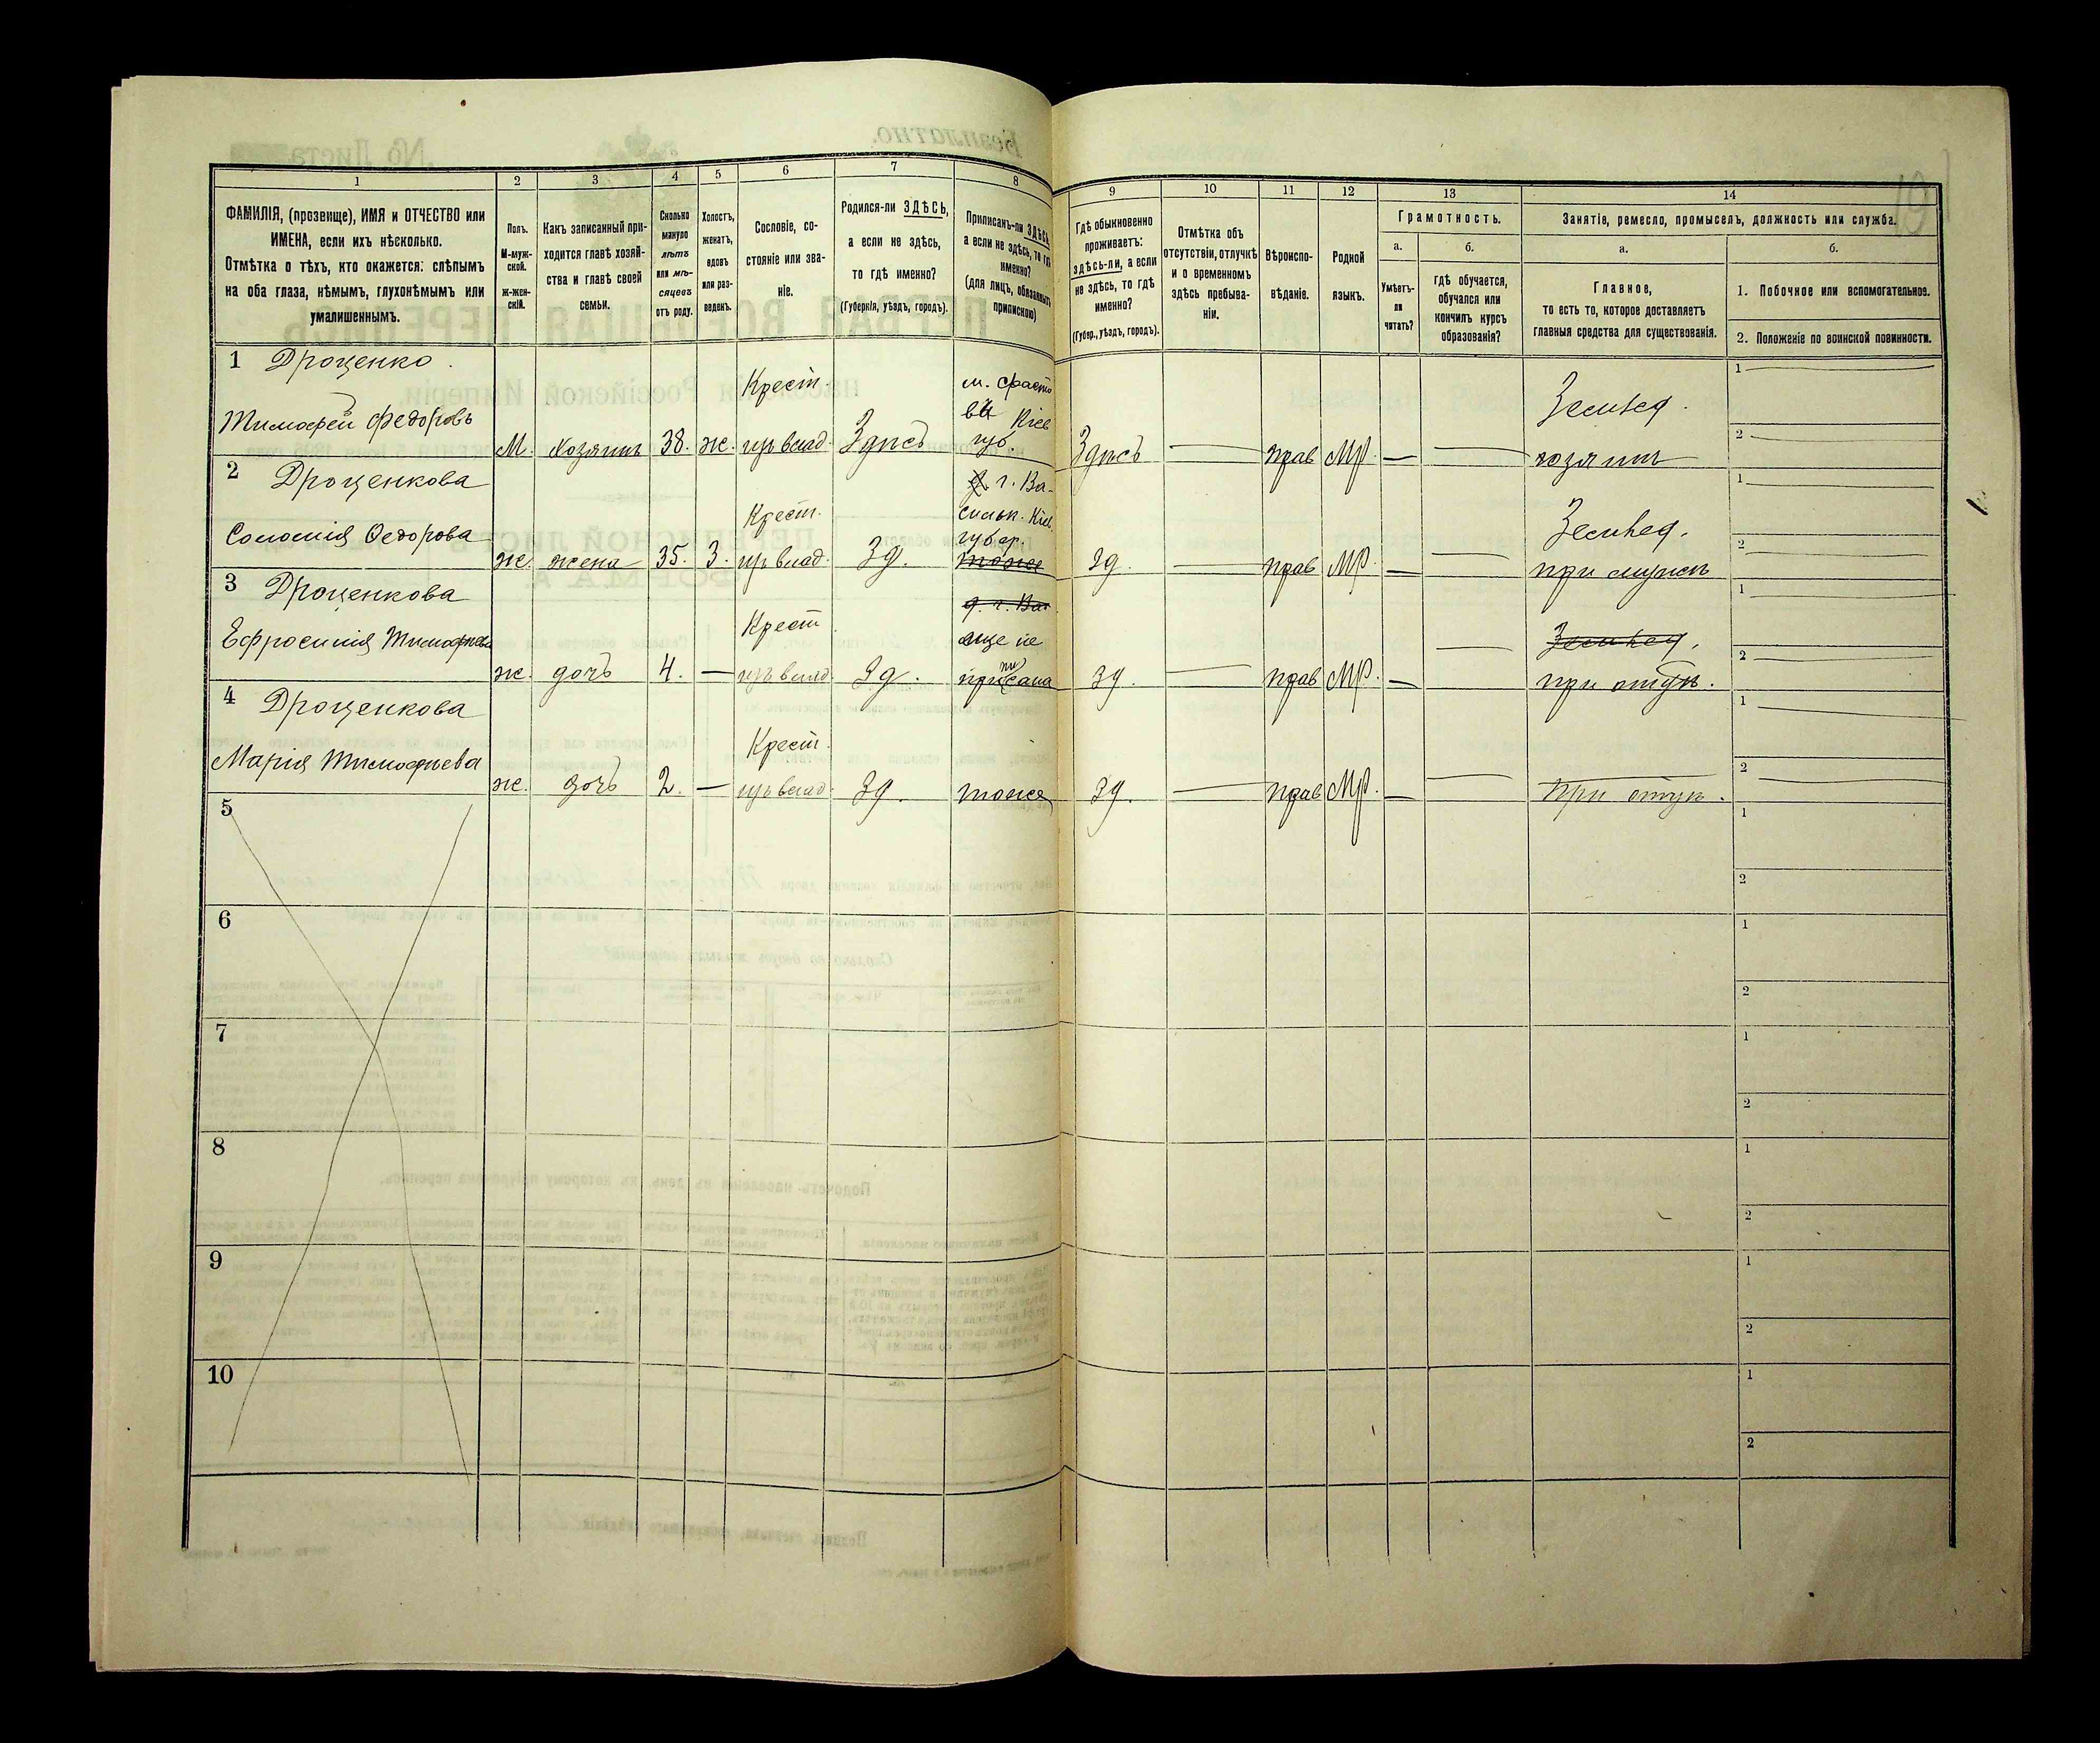 1 2 3 4 5 6 7 8 9 10 11 12 13 14
ФАМИЛІЯ, (прозвище), ИМЯ и ОТЧЕСТВО или
ИМЕНА, если ихъ нѣсколько.
Отмѣтка о тѣхъ, кто окажется: слѣпымъ
на оба глаза, нѣмымъ, глухонѣмымъ или
умалишеннымъ.
Полъ.
М-муж-
ской.
Ж-жен-
скій.
Какъ записанный при-
ходится главѣ хозяй-
ства и главѣ своей
семьи.
Сколько
минуло
лѣтъ
или мѣ-
сяцевъ
отъ роду.
Холостъ,
женатъ,
вдовъ
или раз-
веденъ.
Сословіе, со-
стояніе или зва-
ніе.
Родился-ли ЗДѢСЬ,
а если не здѣсь,
то гдѣ именно?
(Губернія, уѣздъ, городъ).
Приписанъ-ли ЗДѢСЬ,
а если не здѣсь, то гдѣ
именно?
(для лицъ, обязанныхъ
припискою)
Гдѣ обыкновенно
проживаетъ:
здѣсь-ли, а если
не здѣсь, то гдѣ
именно?
(Губер., уѣздъ, городъ).
Отмѣтка объ
отсутствіи, отлучкѣ
и о временномъ
здѣсь пребыва-
ніи.
Вѣроиспо-
вѣданіе.
Родной
языкъ.
Грамотность.
а.
Умѣетъ-
ли
читать?
б.
гдѣ обучается,
обучался или
кончилъ курсъ
образованія?
Занятіе, ремесло, промыселъ, должность или служба.
а.
Главное,
то есть то, которое доставляетъ
главныя средства для существованія.
б.
1. Побочное или вспомогательное.
2. Положеніе по воинской повинности.
1 Дроценко
Тимофей Федоровъ
М. хозяинъ 38. ж.
Крест.
изъ влад.
Здѣсь
м. Фасто
ва Кіев
губ.
Здѣсь — прав МР. — —
Землед.
хозяинъ
1
2
2 Дроценкова
Соломія Федорова
ж. жена 35. З.
Крест.
изъ влад.
Зд.
г. Ва-
сильк. Кіев.
губер.
тоже
Зд. — прав МР. — —
Землед.
при мужѣ
1
2
3 Дроценкова
Ефросинія Тимофѣева
ж. дочь 4. —
Крест
изъ влад.
Зд.
еще не
приписана
Зд. — прав МР. — —
Землед.
при отцѣ.
1
2
4 Дроценкова
Марія Тимофѣева
ж. дочь 2. —
Крест.
изъ влад.
Зд.
тоже
Зд. — прав МР. — —
при отцѣ.
1
2
5
1
2
6
1
2
7
1
2
8
1
2
9
1
2
10
1
2